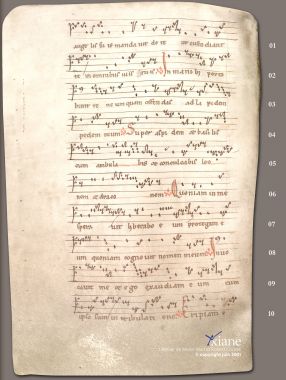 ange lis su is manda uit de te ut custodiant
te in omnibus uiis tuis In mani bus porta
bunt te ne un quam offen das ad la pi dem
pedem tuum Super aspi dem et basi lis
cum ambula bis et conculcabis leo
nem et draco nem Quoniam in me
spera uit liberabo e um protegam e
um quoniam cogno uit nomen meum Inuo
cauit me et ego exau diam e um cum
ipso sum in tribulati one Eripiam e
01
02
03
04
05
06
07
08
09
10
xiane
© copyright juin 2001